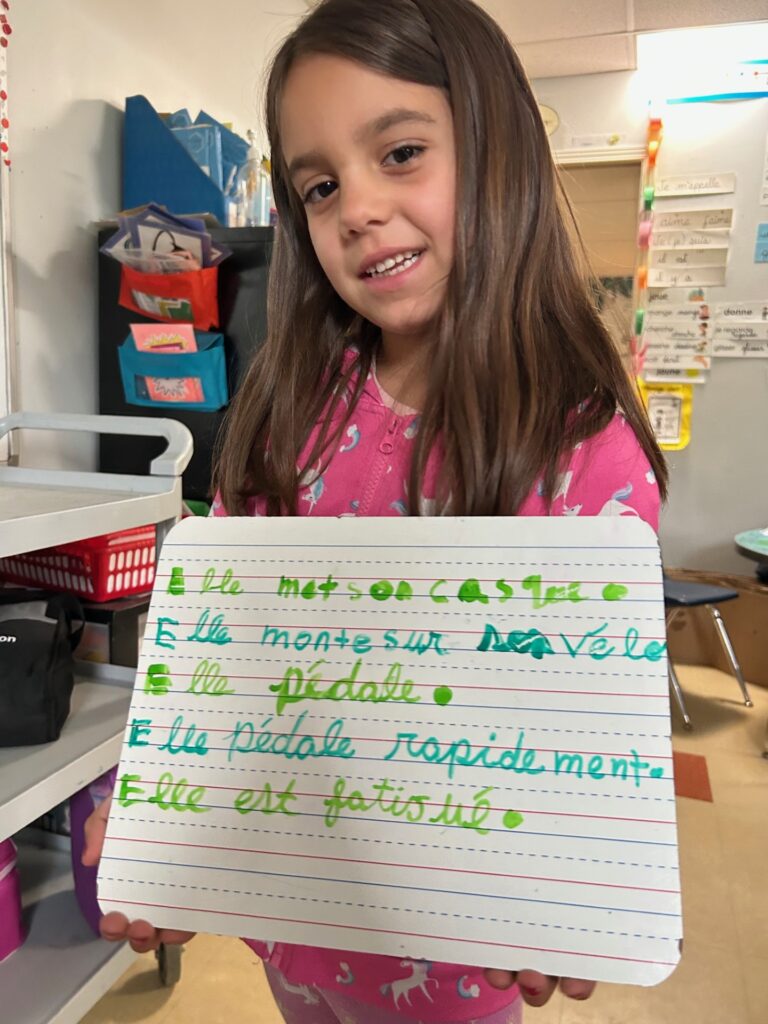 Elle met son casque.
Elle monte sur son vélo
Elle pédale.
Elle pédale rapidement.
Elle est fatigué.
Je m'appelle
aime j'aime
Je (j') suis
il est
il y a
donne
je regarde
jaune